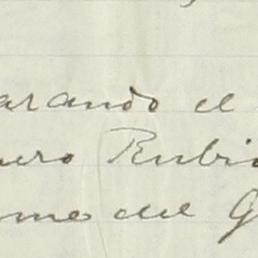 arando el
ero Rubio
me del G